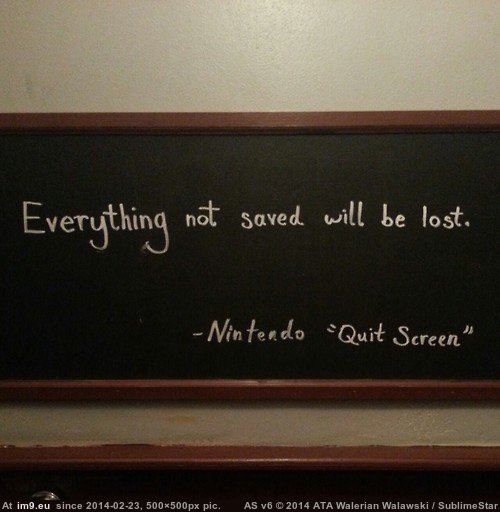 Everything not saved will be lost.
-Nintendo "Quit Screen"
At im9.eu since 2014-02-23, 500×500px pic. AS v6 © 2014 ATA Walerian Walawski / SublimeStar